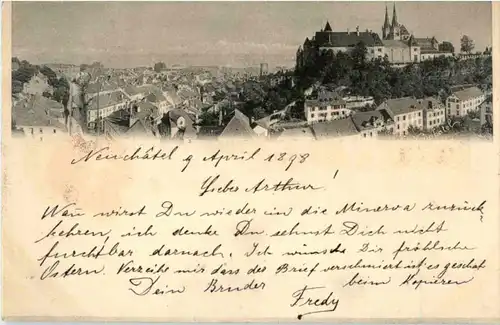 Neuchâtel 9 April 1898
Liebes Arthur!
Wan wirst Du wieder in die Minerva zurück
kehren, ich denke Du sehnst Dich nicht
furchtbar darnach. Ich wünsche Dir fröhliche
Ostern. Verzeihe mir dass der Brief verschmiert ist, es geschah
beim Kopieren
Dein Bruder
Fredy